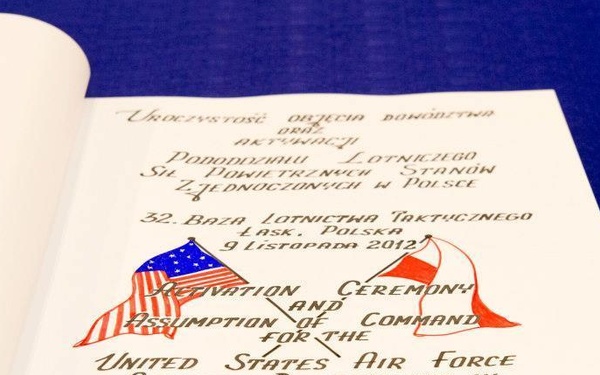 Uroczystość objęcia dowództwa
oraz
aktywacji
Pododdziału Lotniczego
Sił Powietrznych Stanów
Zjednoczonych w Polsce
32. Baza Lotnictwa Taktycznego
Łask, Polska
9 Listopada 2012
Activation Ceremony
and
Assumption of Command
for the
United States Air Force